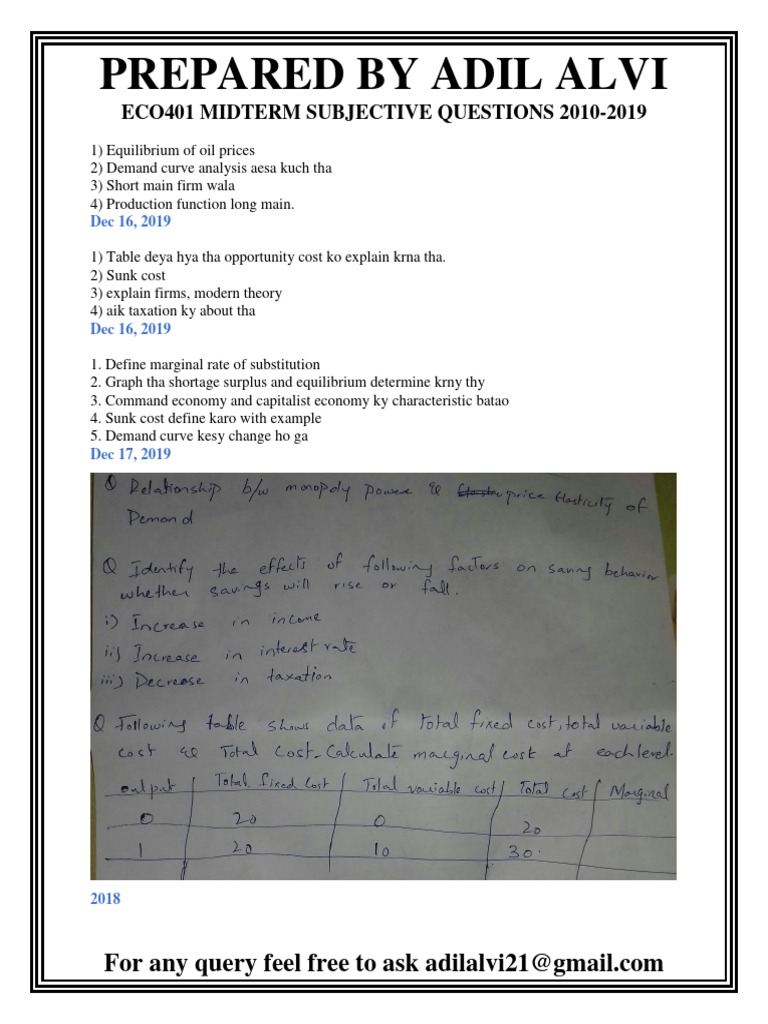 PREPARED BY ADIL ALVI
ECO401 MIDTERM SUBJECTIVE QUESTIONS 2010-2019
1) Equilibrium of oil prices
2) Demand curve analysis aesa kuch tha
3) Short main firm wala
4) Production function long main.
Dec 16, 2019
1) Table deya hya tha opportunity cost ko explain krna tha.
2) Sunk cost
3) explain firms, modern theory
4) aik taxation ky about tha
Dec 16, 2019
1. Define marginal rate of substitution
2. Graph tha shortage surplus and equilibrium determine krny thy
3. Command economy and capitalist economy ky characteristic batao
4. Sunk cost define karo with example
5. Demand curve kesy change ho ga
Dec 17, 2019
Q Relationship b/w monopoly power & price Elasticity of
Demand
Q Identify the effects of following factors on saving behavior
whether savings will rise or fall.
i) Increase in income
ii) Increase in interest rate
iii) Decrease in taxation
Q Following table shows data of total fixed cost, total variable
cost & Total Cost. Calculate marginal cost at each level.
output Total fixed cost Total variable cost Total cost Marginal
0 20 0 20
1 20 10 30.
2018
For any query feel free to ask adilalvi21@gmail.com